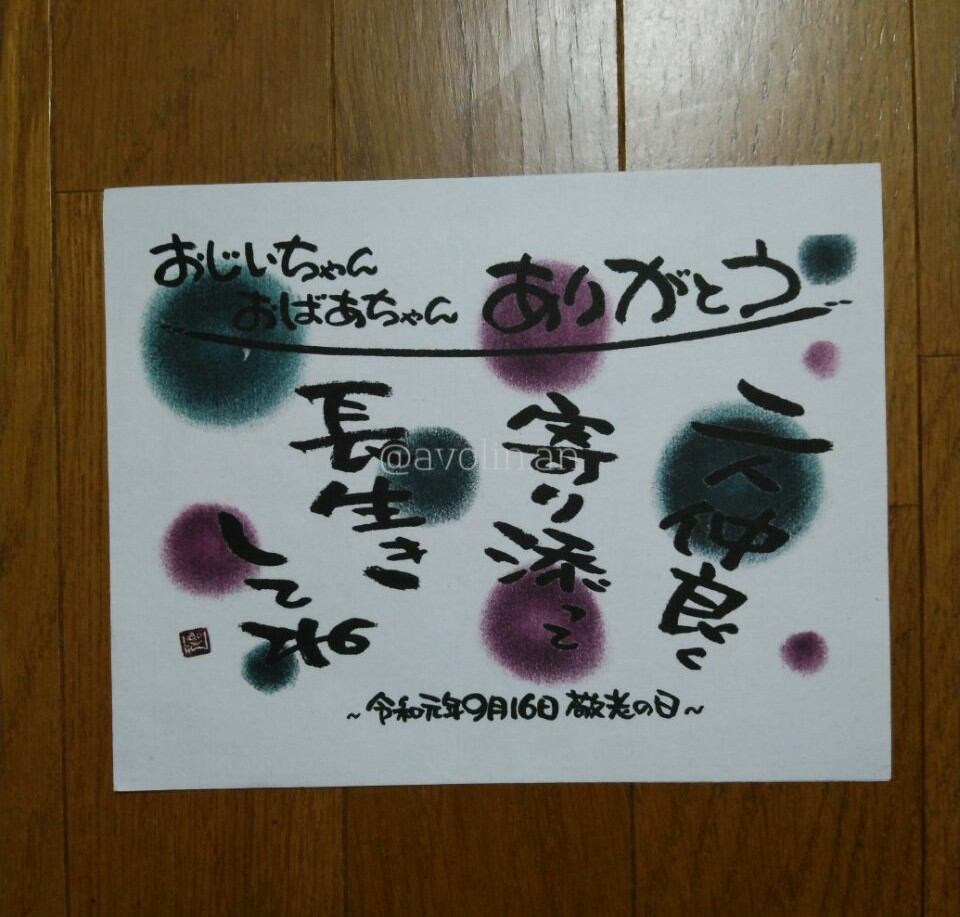 おじいちゃん
おばあちゃん ありがとう
二人仲良く
寄り添って
長生き
してね
~令和元年9月16日 敬老の日~
@avolin an